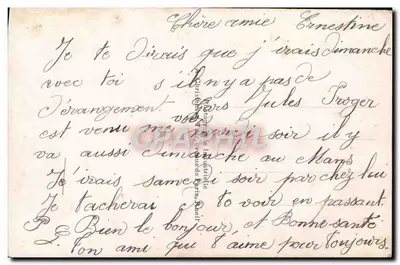 Chère amie Ernestine
Je te dirais que j'irais dimanche
avec toi s'il n'y a pas de
dérangement Jules Troger
est venu me voir mardi soir il y
va aussi dimanche au Mans
J'irais samedi soir par chez lui
Je tacherai de te voir en passant
Bien le bonjour, et Bonne santé
ton ami qui t'aime pour toujours.